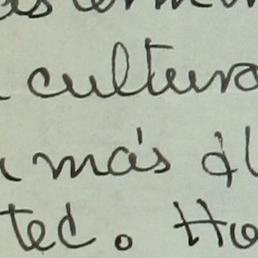 cultura
más al
ted. Ho